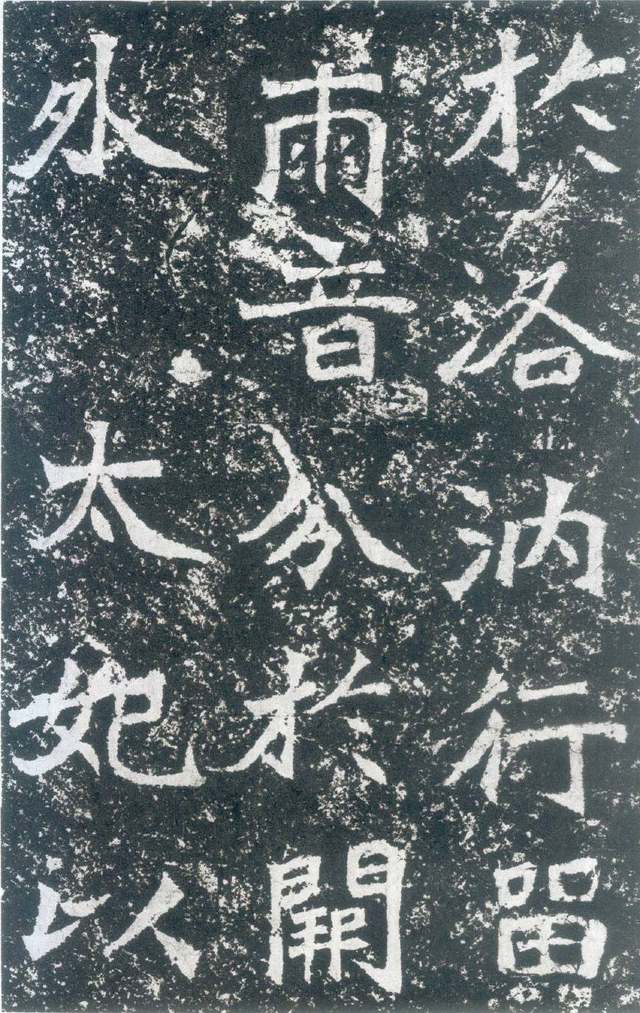 於洛汭行留
兩音分於闕
外太妃以